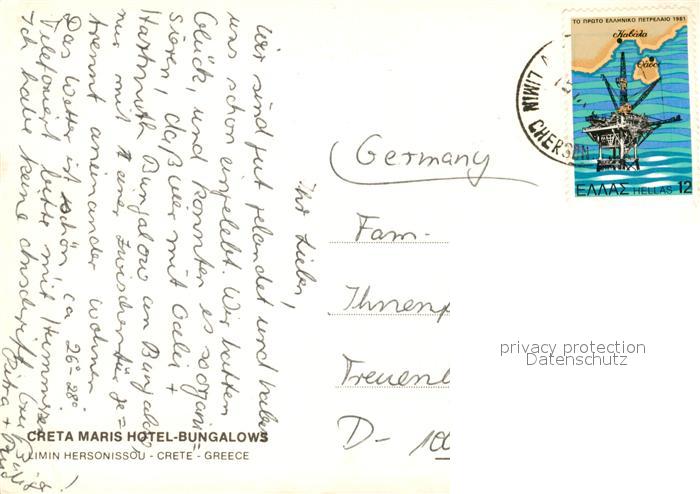 Ihr Lieben!
Wir sind gut gelandet und haben
uns schon eingelebt. Wir hatten
Glück, und konnten es so organi
sieren, daß wir mit Gabi +
Hartmuth Bungalow an Bungalow,
nur mit 1 einer Zwischentür ge=
trennt aneinander wohnen
Das Wetter ist schön, ca 26°-28°
Telefoniert bitte mit
Ich habe keine Anschrift
Petra +
CRETA MARIS HOTEL-BUNGALOWS
LIMIN HERSONISSOU - CRETE - GREECE
Germany
Fam.
Treuenb
D-
ΤΟ ΠΡΩΤΟ ΕΛΛΗΝΙΚΟ ΠΕΤΡΕΛΑΙΟ 1981
Καβάλα
Θάσος
ΕΛΛΑΣ HELLAS 12
LIMIN CHERSON
privacy protection
Datenschutz